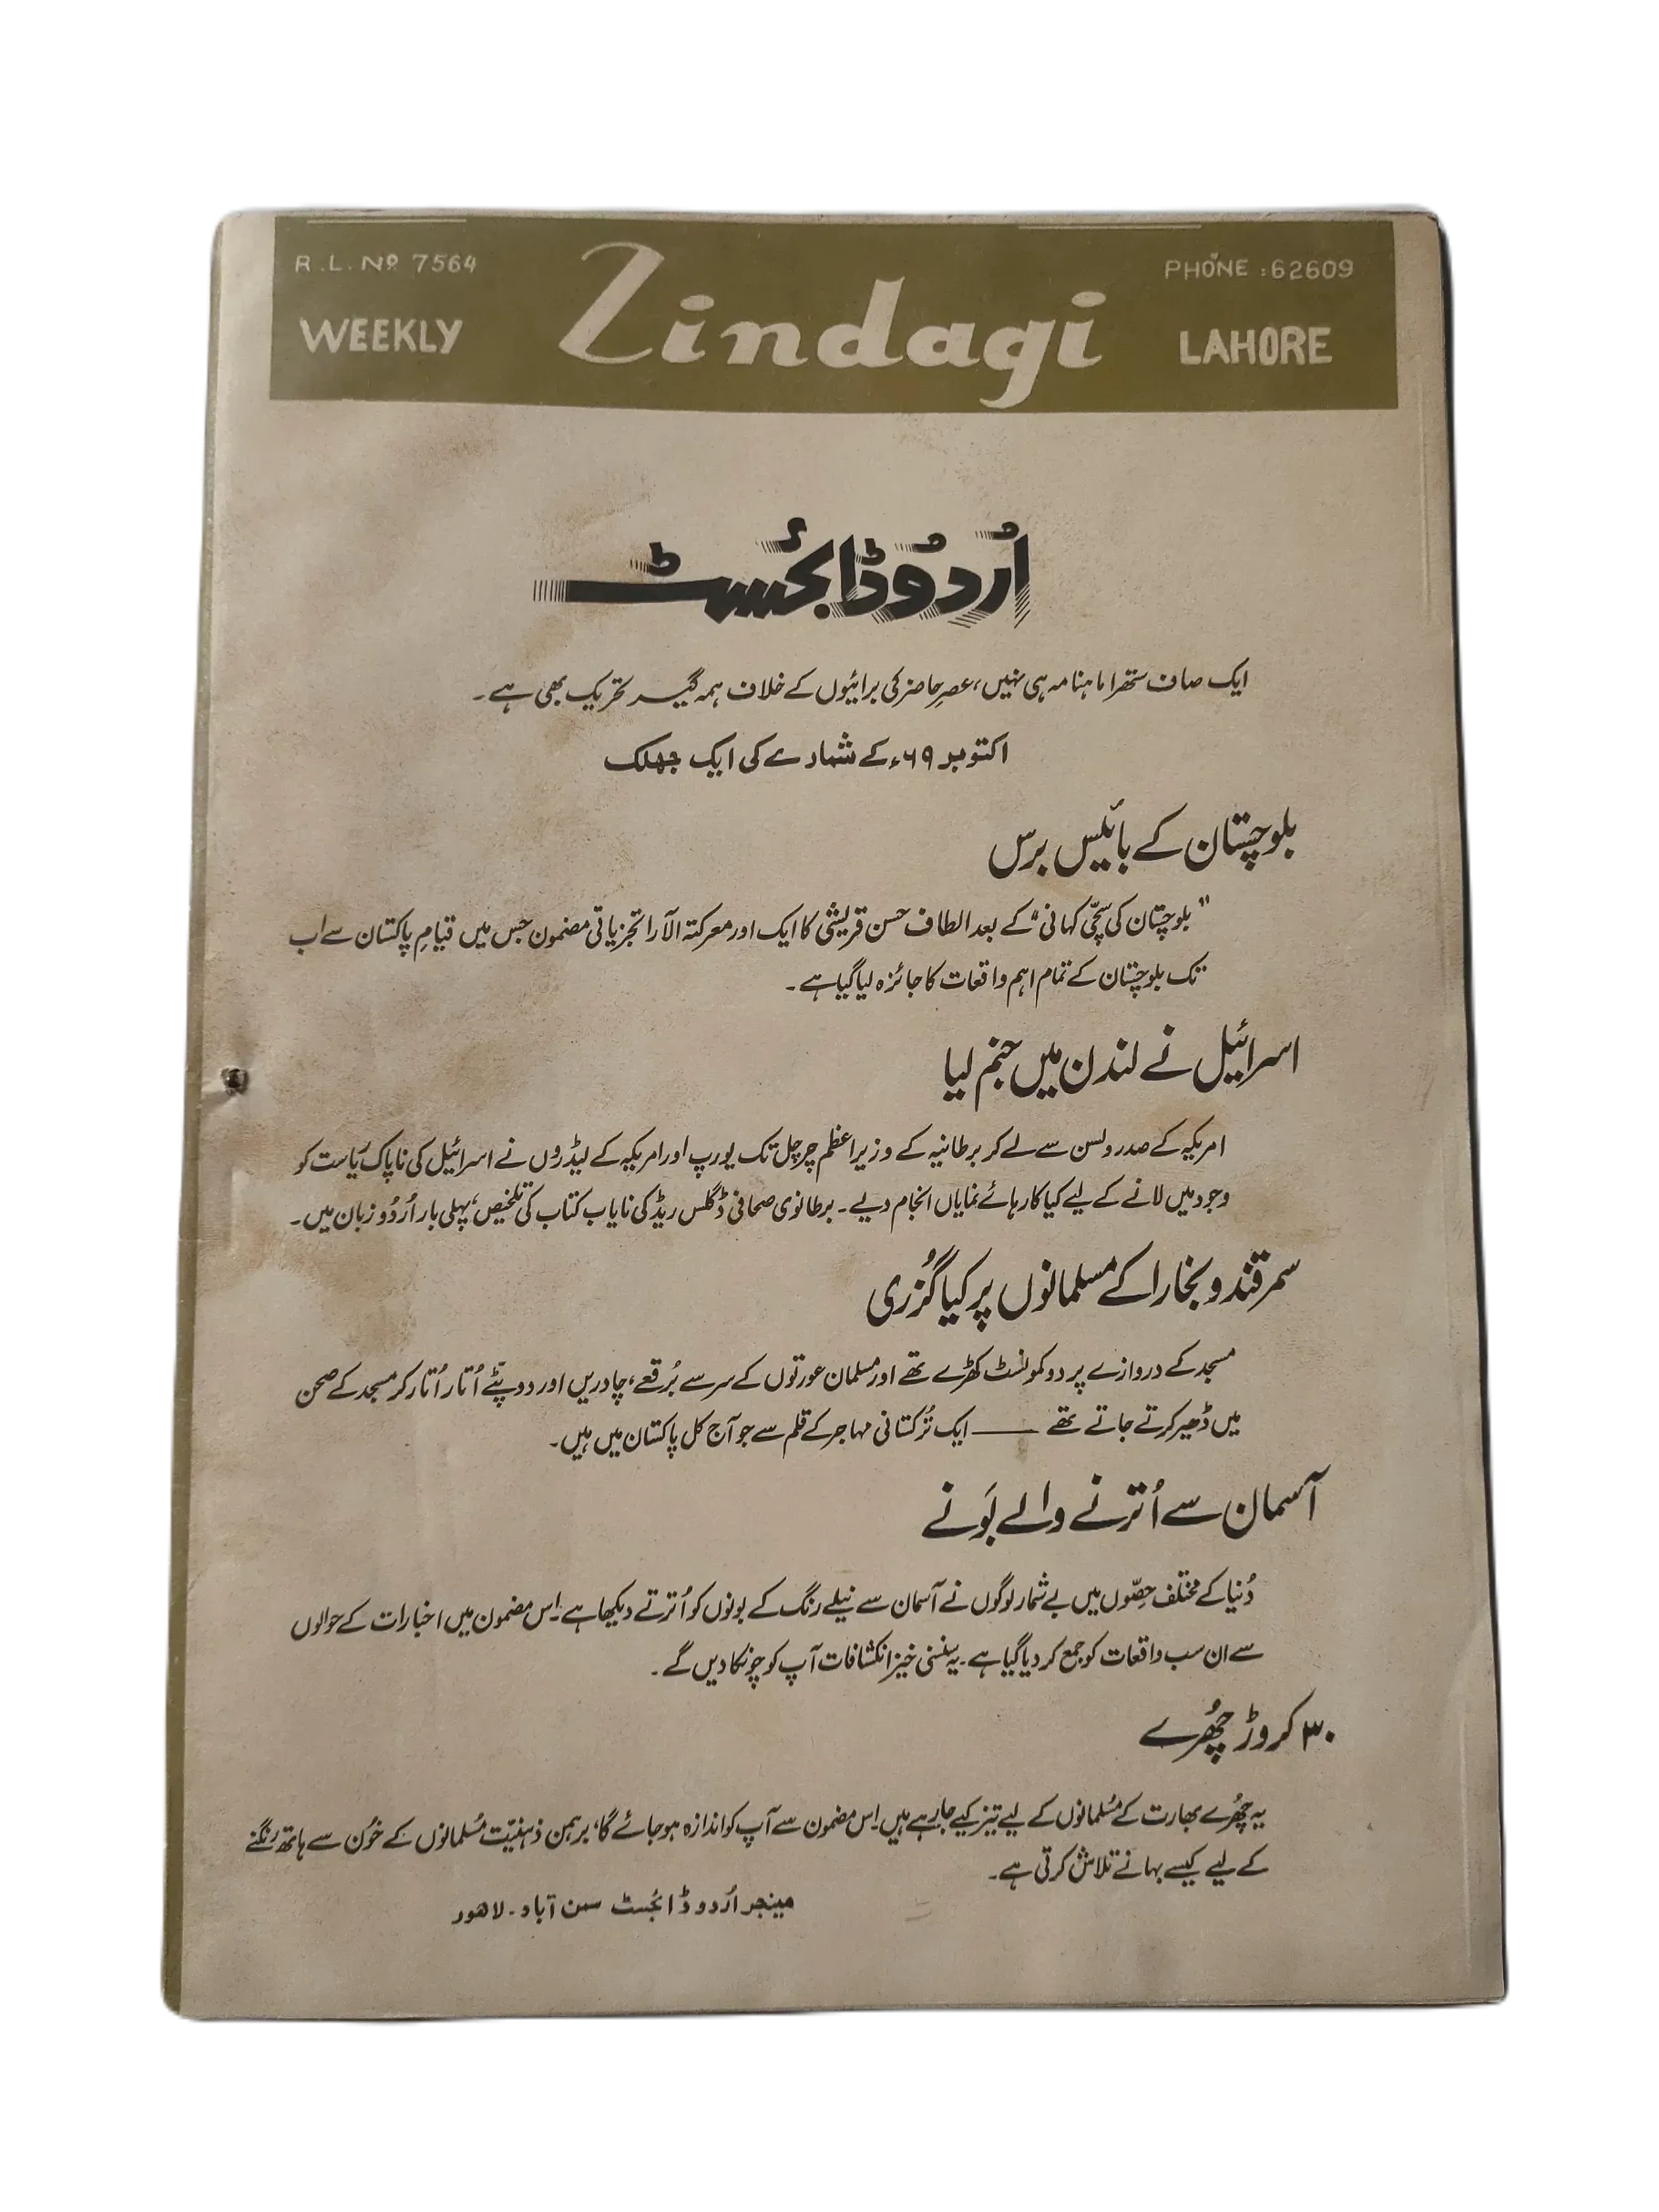 R.L. No 7564
PHONE : 62609
WEEKLY Zindagi LAHORE
اُردو ڈائجسٹ
ایک صاف ستھرا ماہنامہ ہی نہیں، عصرِ حاضر کی برائیوں کے خلاف ہمہ گیر تحریک بھی ہے۔
اکتوبر ۶۹ء کے شمارے کی ایک جھلک
بلوچستان کے بائیس برس
"بلوچستان کی سچّی کہانی" کے بعد الطاف حسن قریشی کا ایک اور معرکتہ الآرا تجزیاتی مضمون جس میں قیامِ پاکستان سے اب
تک بلوچستان کے تمام اہم واقعات کا جائزہ لیا گیا ہے۔
اسرائیل نے لندن میں جنم لیا
امریکہ کے صدر ولسن سے لے کر برطانیہ کے وزیراعظم چرچل تک یورپ اور امریکہ کے لیڈروں نے اسرائیل کی ناپاک ریاست کو
وجود میں لانے کے لیے کیا کارہائے نمایاں انجام دیے۔ برطانوی صحافی ڈگلس ریڈ کی نایاب کتاب کی تلخیص، پہلی بار اُردو زبان میں۔
سمرقند و بخارا کے مسلمانوں پر کیا گُزری
مسجد کے دروازے پر دو کمونسٹ کھڑے تھے اور مسلمان عورتوں کے سر سے بُرقعے، چادریں اور دوپٹے اُتار اُتار کر مسجد کے صحن
میں ڈھیر کرتے جاتے تھے —— ایک تُرکستانی مہاجر کے قلم سے جو آج کل پاکستان میں ہیں۔
آسمان سے اُترنے والے بَونے
دُنیا کے مختلف حصّوں میں بے شمار لوگوں نے آسمان سے نیلے رنگ کے بونوں کو اُترتے دیکھا ہے۔ اس مضمون میں اخبارات کے حوالوں
سے ان سب واقعات کو جمع کر دیا گیا ہے۔ یہ سنسنی خیز انکشافات آپ کو چونکا دیں گے۔
۳۰ کروڑ چُھرے
یہ چُھرے بھارت کے مُسلمانوں کے لیے تیز کیے جا رہے ہیں۔ اس مضمون سے آپ کو اندازہ ہو جائے گا، برہمن ذہنیّت مُسلمانوں کے خُون سے ہاتھ رنگنے
کے لیے کیسے بہانے تلاش کرتی ہے۔
مینجر اُردو ڈائجسٹ سمن آباد۔ لاہور